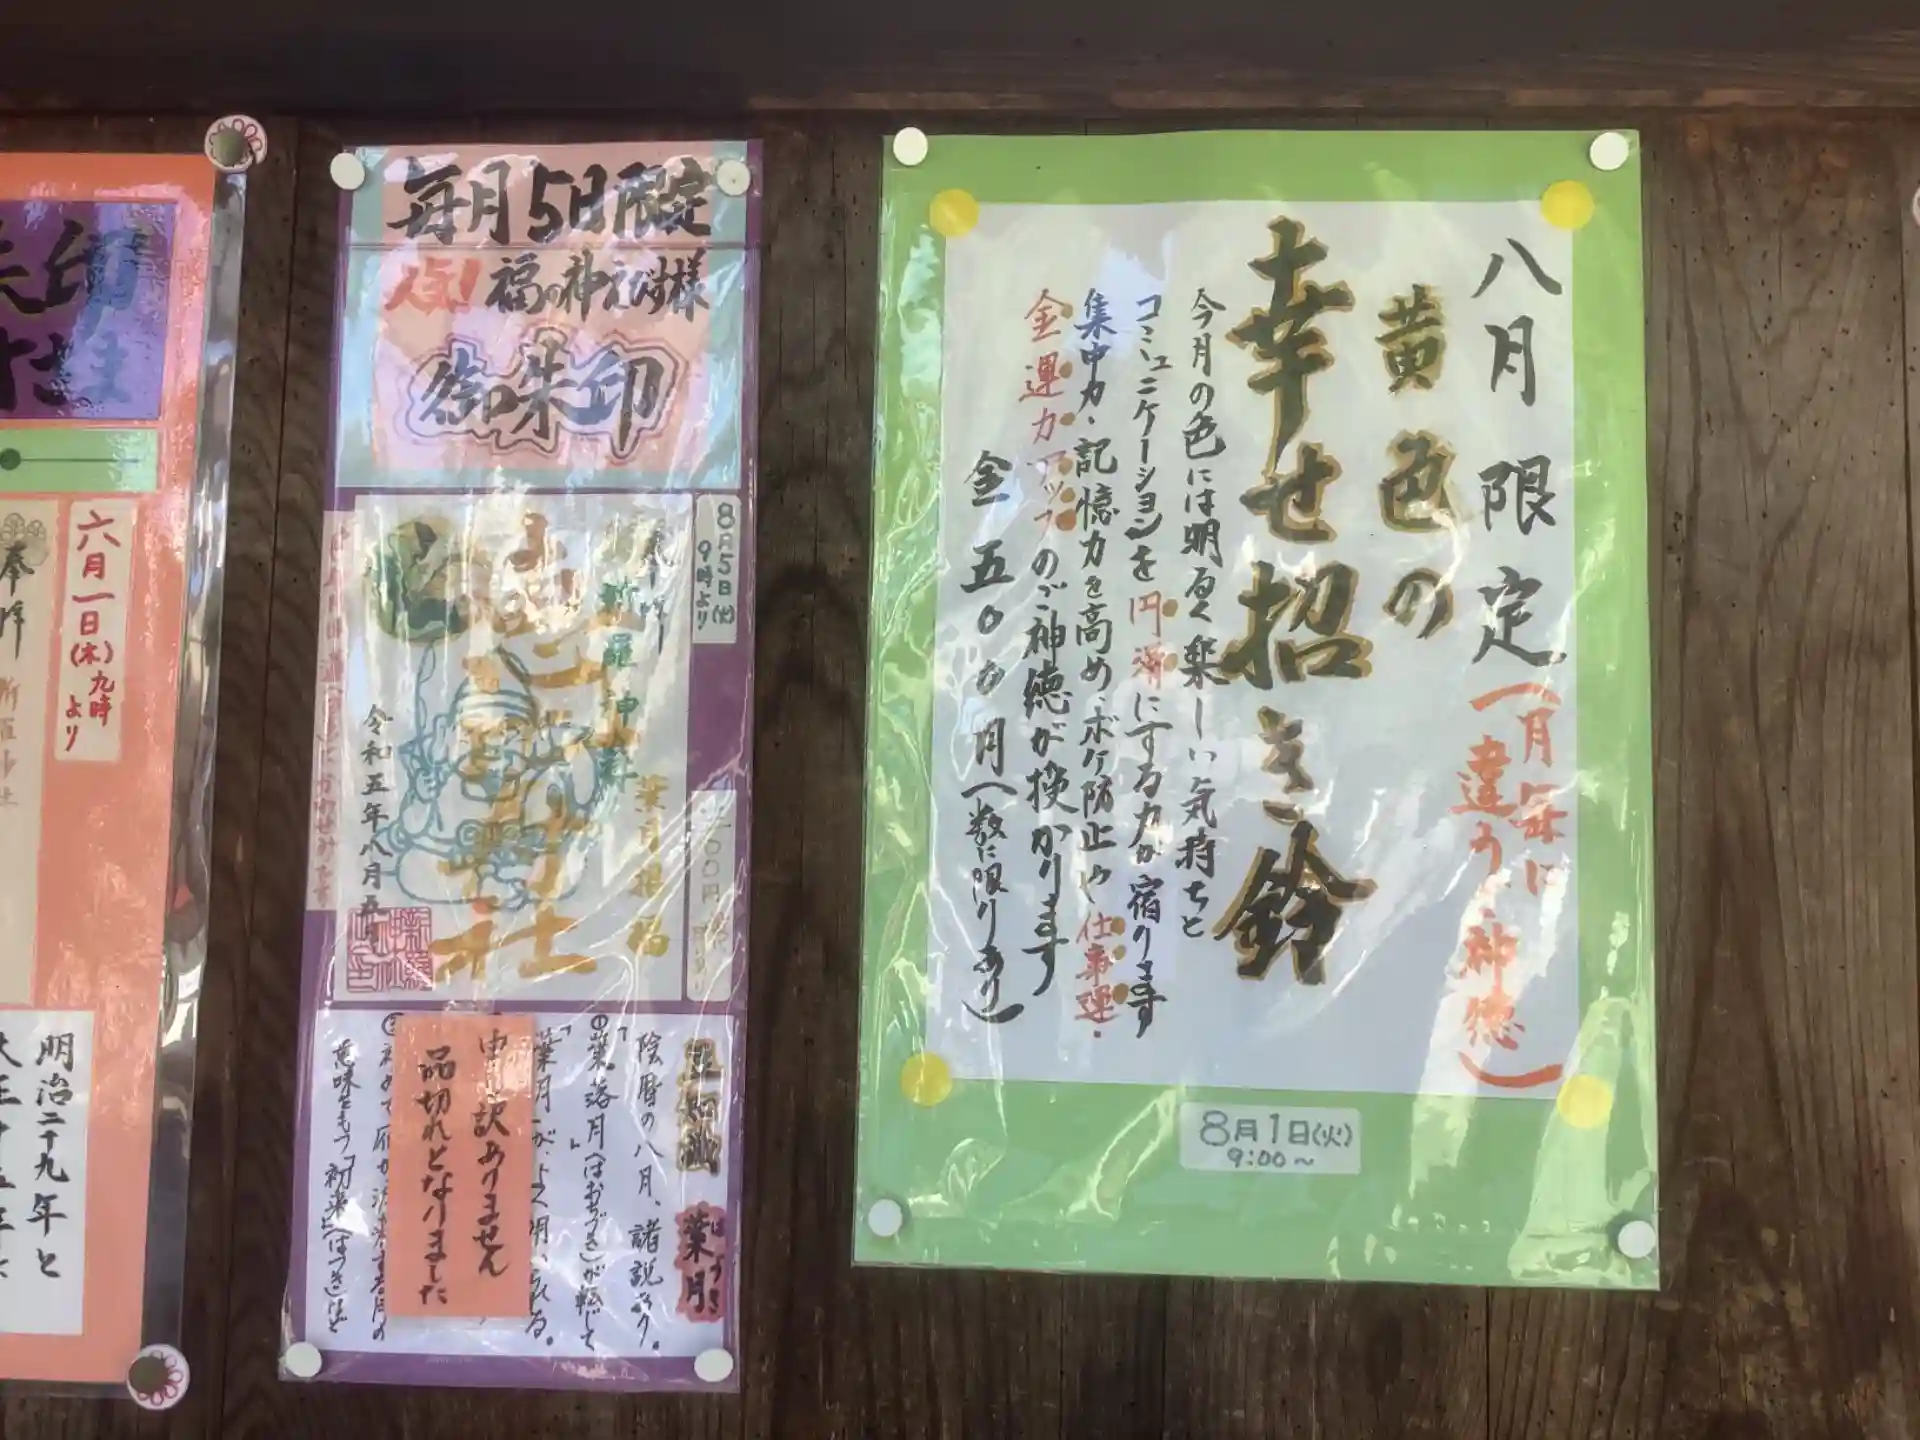 八月限定(月毎に
違う神徳)
黄色の
幸せ招き鈴
今月の色には明るく楽しい気持ちと
コミュニケーションを円満にする力が宿ります
集中力・記憶力を高め、ボケ防止や仕事運・
金運力アップのご神徳が授かります
金五〇〇円(数に限りあり)
8月1日(火)
9:00~
毎月5日限定
福の神えびす様
御朱印
8月5日(土)
9時より
奉拝
新羅神社
葉月招福
恵比寿社
令和五年八月五日
豆知識
葉月
はづき
陰暦の八月、諸説あり。
①「葉落月」(はおちづき)が転じて
申し訳ありません
品切れとなりました
意味をもつ「初来」(はつき)
朱印
六月一日(木)九時
より
奉拝
明治二十九年と